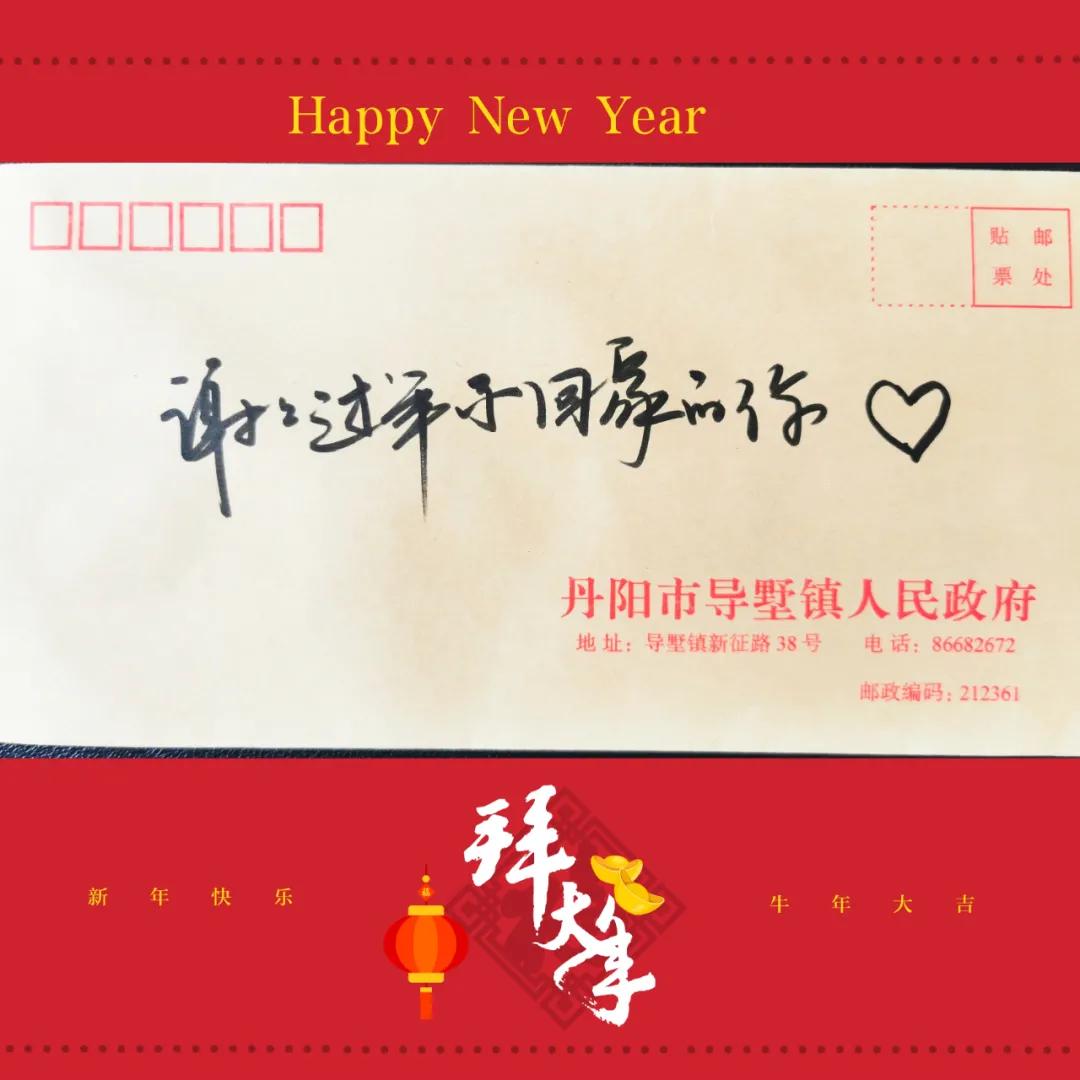 Happy New Year
贴 邮
票 处
谢谢过年不回家的你
丹阳市导墅镇人民政府
地址：导墅镇新征路38号 电话：86682672
邮政编码：212361
拜大年
新年快乐
牛年大吉
福